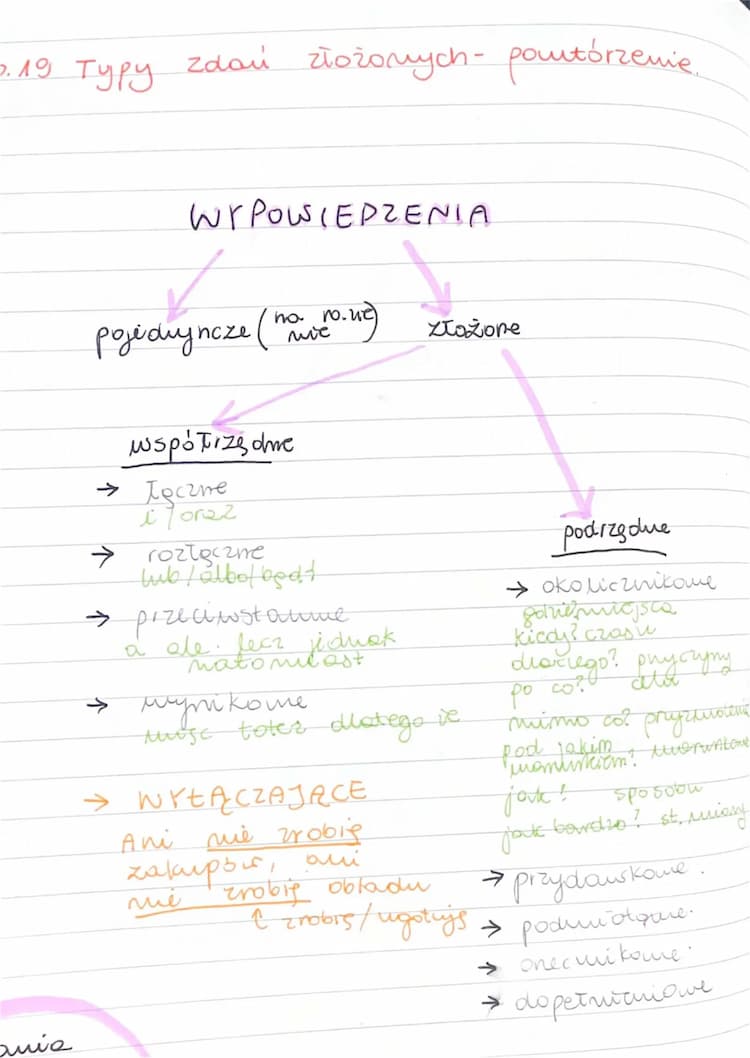 .19 Typy zdań złożonych - powtórzenie.
WYPOWIEDZENIA
pojedyncze
złożone
współrzędne
→ łączne
i / oraz
→ rozłączne
lub / albo / bądź
→ przeciwstawne
a ale lecz jednak
natomiast
→ wynikowe
więc toteż dlatego że
→ WYŁĄCZAJĄCE
Ani nie zrobię
zakupów, ani
nie zrobię obiadu
↑ zrobię / ugotuję
podrzędne
→ okolicznikowe
gdzie? miejsca
kiedy? czasu
dlaczego? przyczyny
po co? celu
mimo co? przyzwolenia
pod jakim
warunkiem? warunkowe
jak? sposobu
jak bardzo? st. miary
→ przydawkowe.
→ podmiotowe.
→ orzecznikowe.
→ dopełnieniowe
ania